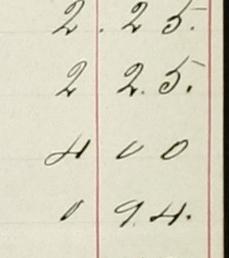 2.25.
2 2.5.
4 00
0 94.